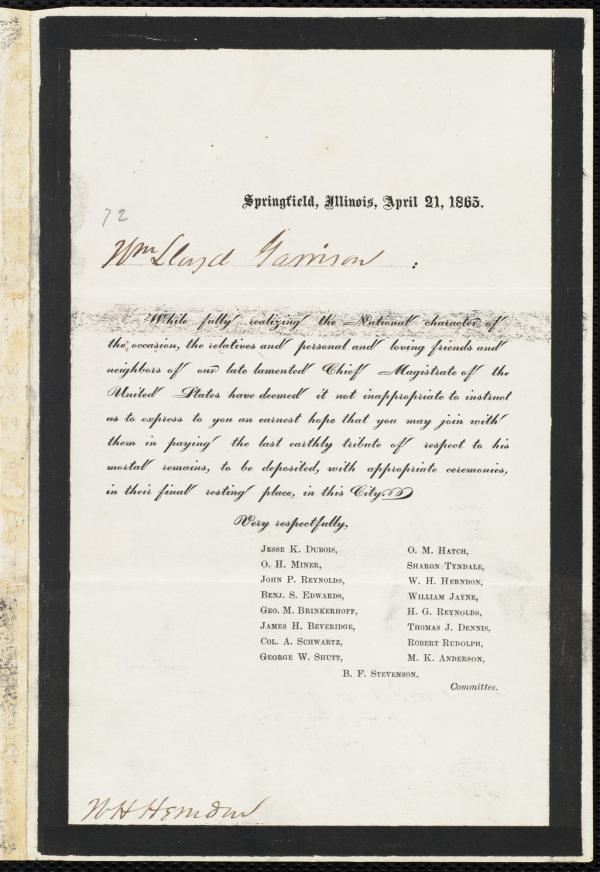 Springfield, Illinois, April 21, 1865.
72
Wm Lloyd Garrison :
While fully realizing the National character of
the occasion, the relatives and personal and loving friends and
neighbors of our late lamented Chief Magistrate of the
United States have deemed it not inappropriate to instruct
us to express to you an earnest hope that you may join with
them in paying the last earthly tribute of respect to his
mortal remains, to be deposited, with appropriate ceremonies,
in their final resting place, in this City.
Very respectfully,
Jesse K. Dubois, O. M. Hatch,
O. H. Miner, Sharon Tyndale,
John P. Reynolds, W. H. Herndon,
Benj. S. Edwards, William Jayne,
Geo. M. Brinkerhoff, H. G. Reynolds,
James H. Beveridge, Thomas J. Dennis,
Col. A. Schwartz, Robert Rudolph,
George W. Shutt, M. K. Anderson,
B. F. Stevenson,
Committee.
W H Herndon